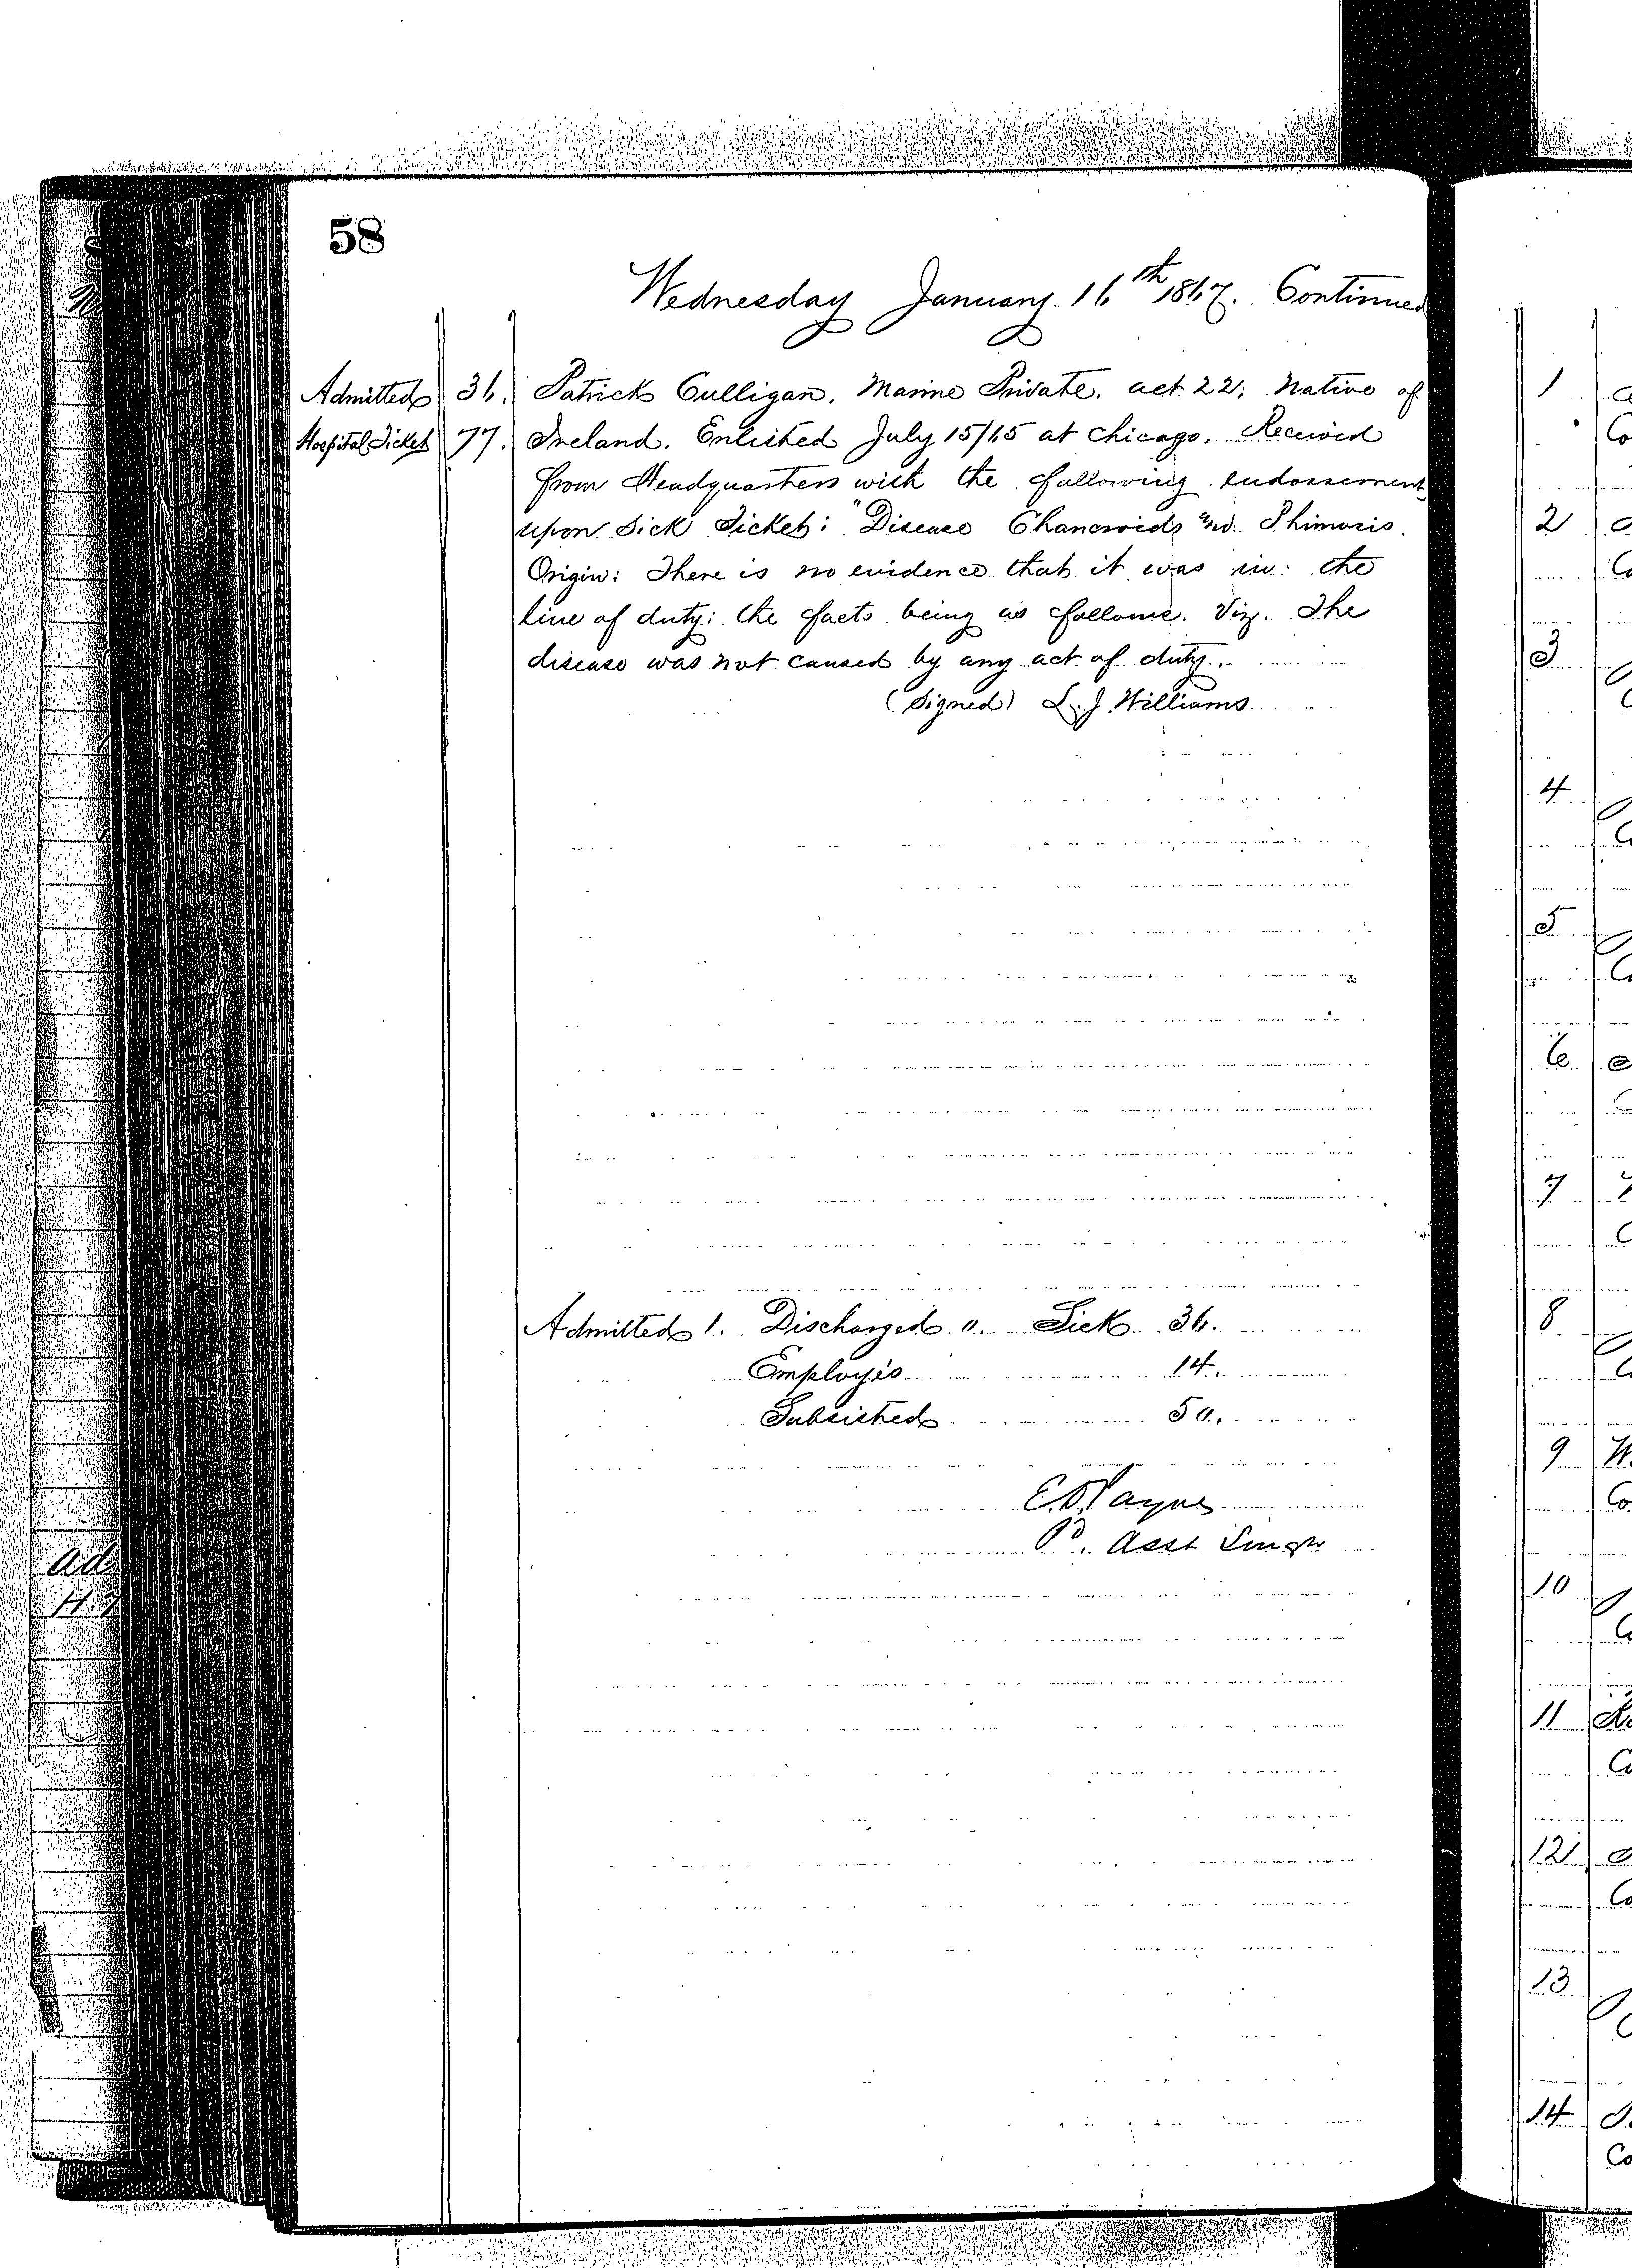 58
Wednesday January 16th 1867. Continued
Admitted 36. Patrick Culligan, Marine Private. aet 22. Native of
Hospital Ticket 77. Ireland. Enlisted July 15/65 at Chicago. Received
from Headquarters with the following endorsement
upon Sick Ticket: "Disease Chancroids and Phimosis.
Origin: There is no evidence that it was in: the
line of duty: the facts being as follows. Viz. The
disease was not caused by any act of duty.
(Signed) L. J. Williams
Admitted 1. Discharged 0. Sick 36.
Employés 14.
Subsisted 50.
E. D. Payne
Pd. Asst Surgn
1
2
3
4
5
6
7
8
9
10
11
12
13
14